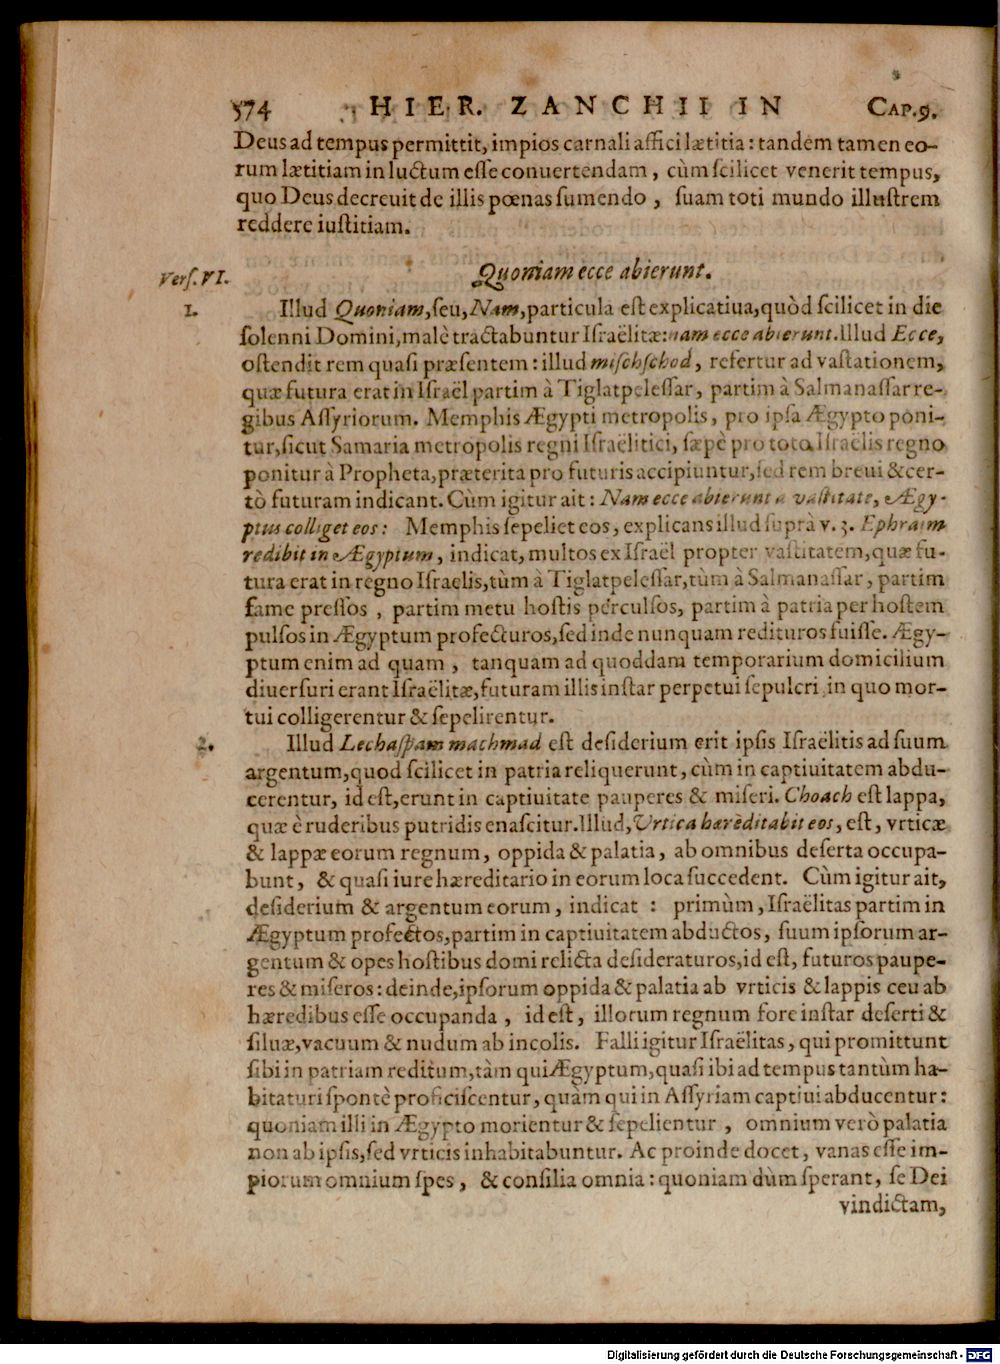 574 HIER. ZANCHII IN CAP.9.
Deus ad tempus permittit, impios carnali affici lætitia: tandem tamen eo-
rum lætitiam in luctum eſſe conuertendam, cùm ſcilicet venerit tempus,
quo Deus decreuit de illis pœnas ſumendo, ſuam toti mundo illuſtrem
reddere iuſtitiam.
Verſ. VI. Quoniam ecce abierunt.
1. Illud Quoniam, ſeu, Nam, particula eſt explicatiua, quòd ſcilicet in die
ſolenni Domini, malè tractabuntur Iſraëlitæ: nam ecce abierunt. Illud Ecce,
oſtendit rem quaſi præſentem: illud miſchſchod, refertur ad vaſtationem,
quæ futura erat in Iſraël partim à Tiglatpeleſſar, partim à Salmanaſſar re-
gibus Aſſyriorum. Memphis Ægypti metropolis, pro ipſa Ægypto poni-
tur, ſicut Samaria metropolis regni Iſraëlitici, ſæpè pro toto Iſraëlis regno
ponitur à Propheta, præterita pro futuris accipiuntur, ſed rem breui & cer-
tò futuram indicant. Cùm igitur ait: Nam ecce abierunt a vaſtitate, Ægy-
ptus colliget eos: Memphis ſepeliet eos, explicans illud ſuprà v. 3. Ephraim
redibit in Ægyptum, indicat, multos ex Iſraël propter vaſtitatem, quæ fu-
tura erat in regno Iſraelis, tùm à Tiglatpeleſſar, tùm à Salmanaſſar, partim
fame preſſos, partim metu hoſtis perculſos, partim à patria per hoſtem
pulſos in Ægyptum profecturos, ſed inde nunquam redituros fuiſſe. Ægy-
ptum enim ad quam, tanquam ad quoddam temporarium domicilium
diuerſuri erant Iſraëlitæ, futuram illis inſtar perpetui ſepulcri, in quo mor-
tui colligerentur & ſepelirentur.
2. Illud Lechaſpam machmad eſt deſiderium erit ipſis Iſraëlitis ad ſuum
argentum, quod ſcilicet in patria reliquerunt, cùm in captiuitatem abdu-
cerentur, id eſt, erunt in captiuitate pauperes & miſeri. Choach eſt lappa,
quæ è ruderibus putridis enaſcitur. Illud, Vrtica hæreditabit eos, eſt, vrticæ
& lappæ eorum regnum, oppida & palatia, ab omnibus deſerta occupa-
bunt, & quaſi iure hæreditario in eorum loca ſuccedent. Cùm igitur ait,
deſiderium & argentum eorum, indicat: primùm, Iſraëlitas partim in
Ægyptum profectos, partim in captiuitatem abductos, ſuum ipſorum ar-
gentum & opes hoſtibus domi relicta deſideraturos, id eſt, futuros paupe-
res & miſeros: deinde, ipſorum oppida & palatia ab vrticis & lappis ceu ab
hæredibus eſſe occupanda, id eſt, illorum regnum fore inſtar deſerti &
ſiluæ, vacuum & nudum ab incolis. Falli igitur Iſraëlitas, qui promittunt
ſibi in patriam reditum, tàm qui Ægyptum, quaſi ibi ad tempus tantùm ha-
bitaturi ſpontè proficiſcentur, quàm qui in Aſſyriam captiui abducentur:
quoniam illi in Ægypto morientur & ſepelientur, omnium verò palatia
non ab ipſis, ſed vrticis inhabitabuntur. Ac proinde docet, vanas eſſe im-
piorum omnium ſpes, & conſilia omnia: quoniam dùm ſperant, ſe Dei
vindictam,
Digitalisierung gefördert durch die Deutsche Forschungsgemeinschaft - DFG